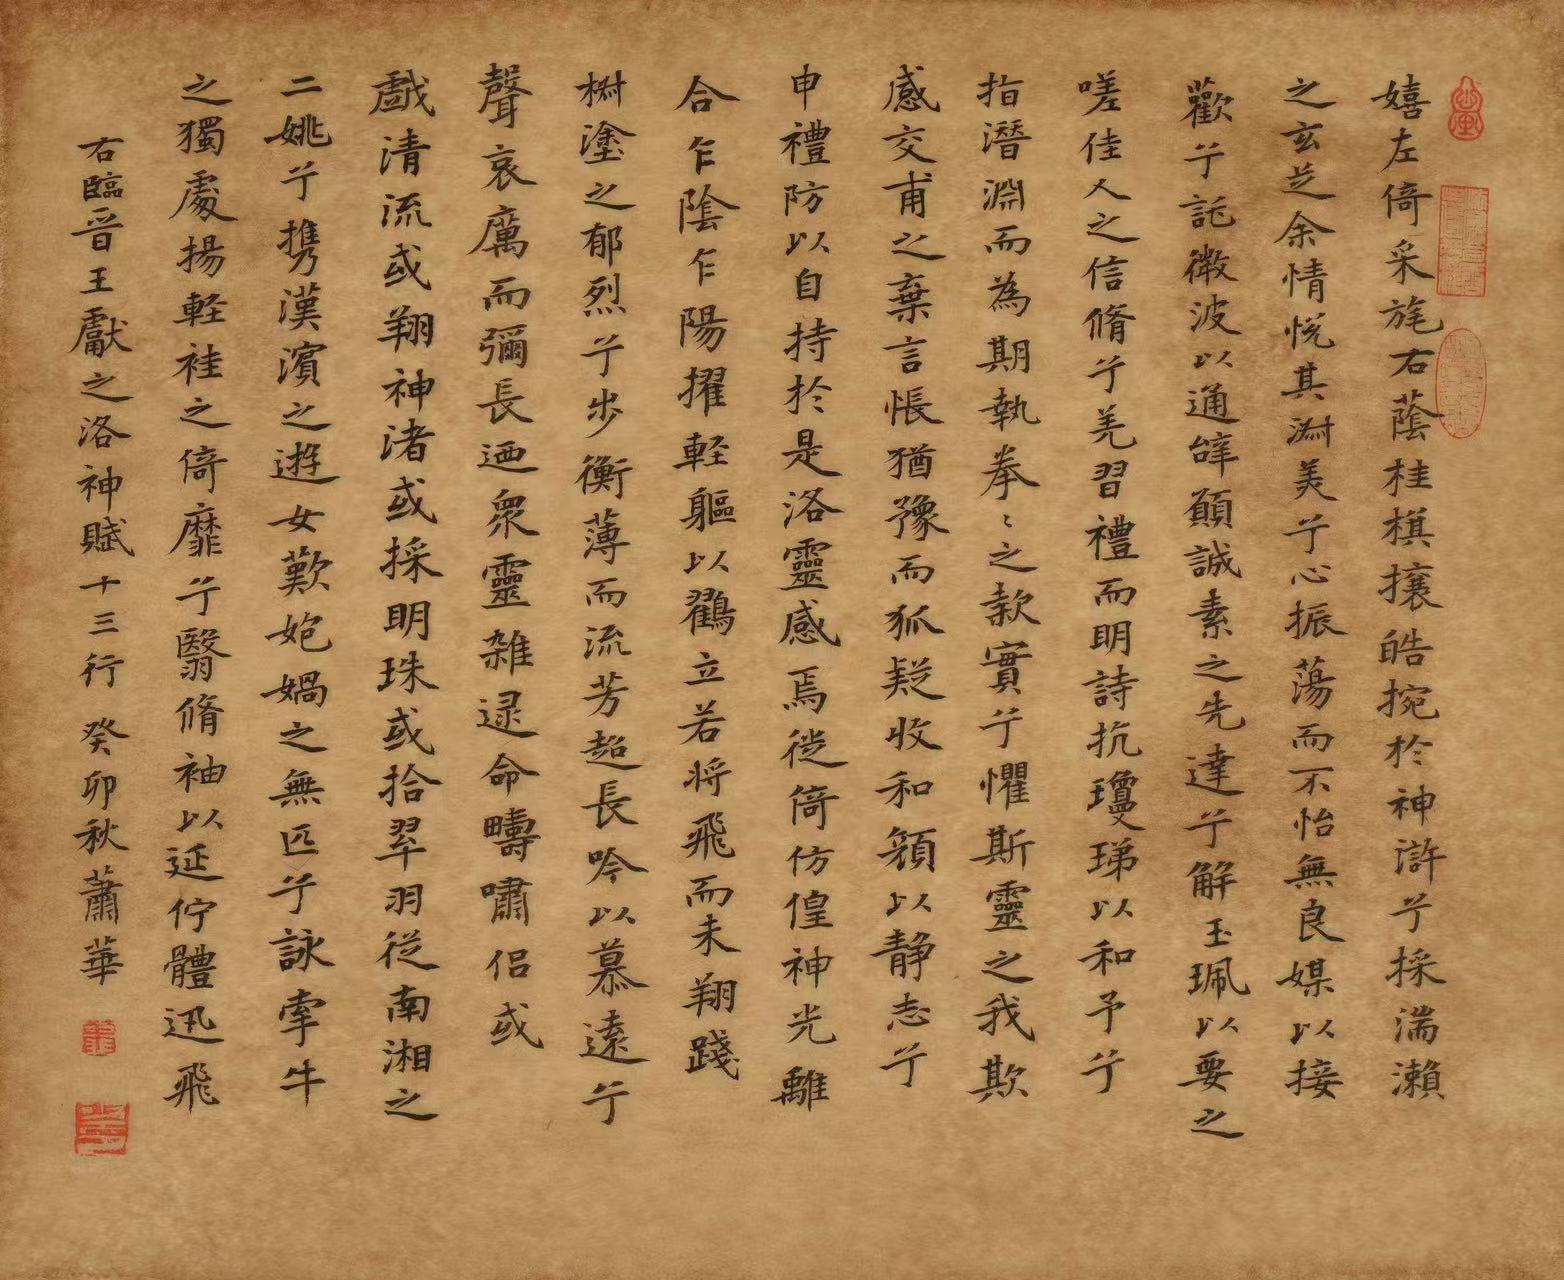 嬉左倚采旄右蔭桂棋攘皓捥於神滸兮採湍瀨
之玄芝余情悅其淑美兮心振蕩而不怡無良媒以接
歡兮託微波以通辝願誠素之先達兮解玉珮以要之
嗟佳人之信脩兮羌習禮而明詩抗瓊珶以和予兮
指潛淵而為期執拳〻之款實兮懼斯靈之我欺
感交甫之棄言悵猶豫而狐疑收和顏以静志兮
申禮防以自持於是洛靈感焉徙倚仿偟神光離
合乍陰乍陽擢輕軀以鸖立若将飛而未翔踐
樹塗之郁烈兮步衡薄而流芳超長吟以慕遠兮
聲哀厲而彌長迺眾靈雜逯命疇嘯侶或
戲清流或翔神渚或採明珠或拾翠羽從南湘之
二姚兮携漢濱之遊女歎媩媧之無匹兮詠牽牛
之獨處揚輕袿之倚靡兮翳脩袖以延佇體迅飛
右臨晉王獻之洛神賦十三行 癸卯秋蕭華